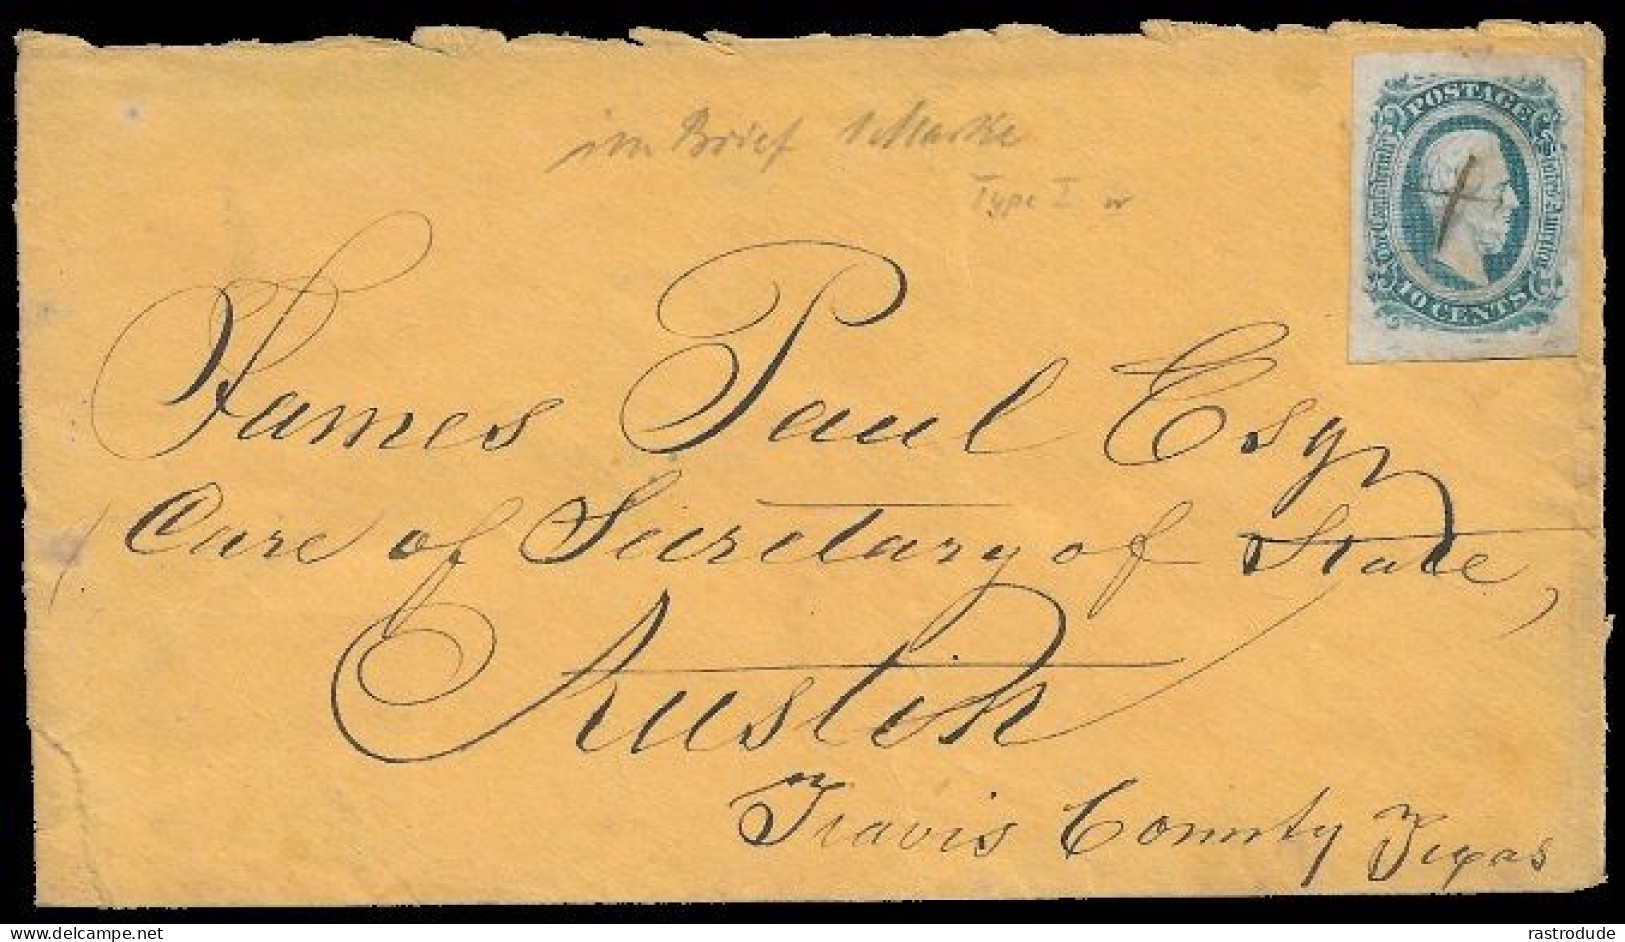 im Brief 1 Marke
Type I
POSTAGE
The Confederate States of America
10 CENTS
James Paul Esqr
Care of Secretary of State,
Austin
Travis County Texas
www.delcampe.net
rastrodude